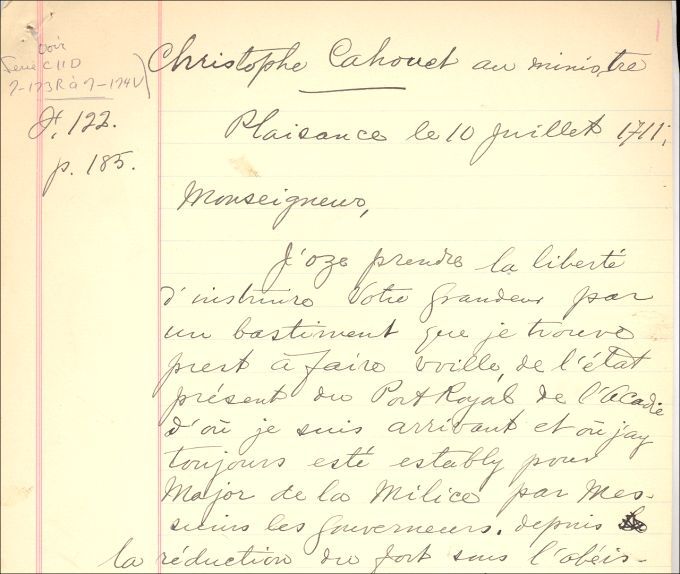 1
Voir
Serie C11D
7-173R à 7-174V)
Christophe Cahouet au ministre
J, 122.
p. 185.
Plaisance le 10 Juillet 1711,
Monseigneur,
J'oze prendre la liberté
d'instruire Votre Grandeur par
un bastiment que je trouve
prest à faire voille, de l'état
présent du Port Royal de l'Acadie
d'où je suis arrivant et où j'ay
toujours esté estably pour
Major de la Milice par Mes-
sieurs les Gouverneurs. depuis
la réduction du fort sous l'obéis-